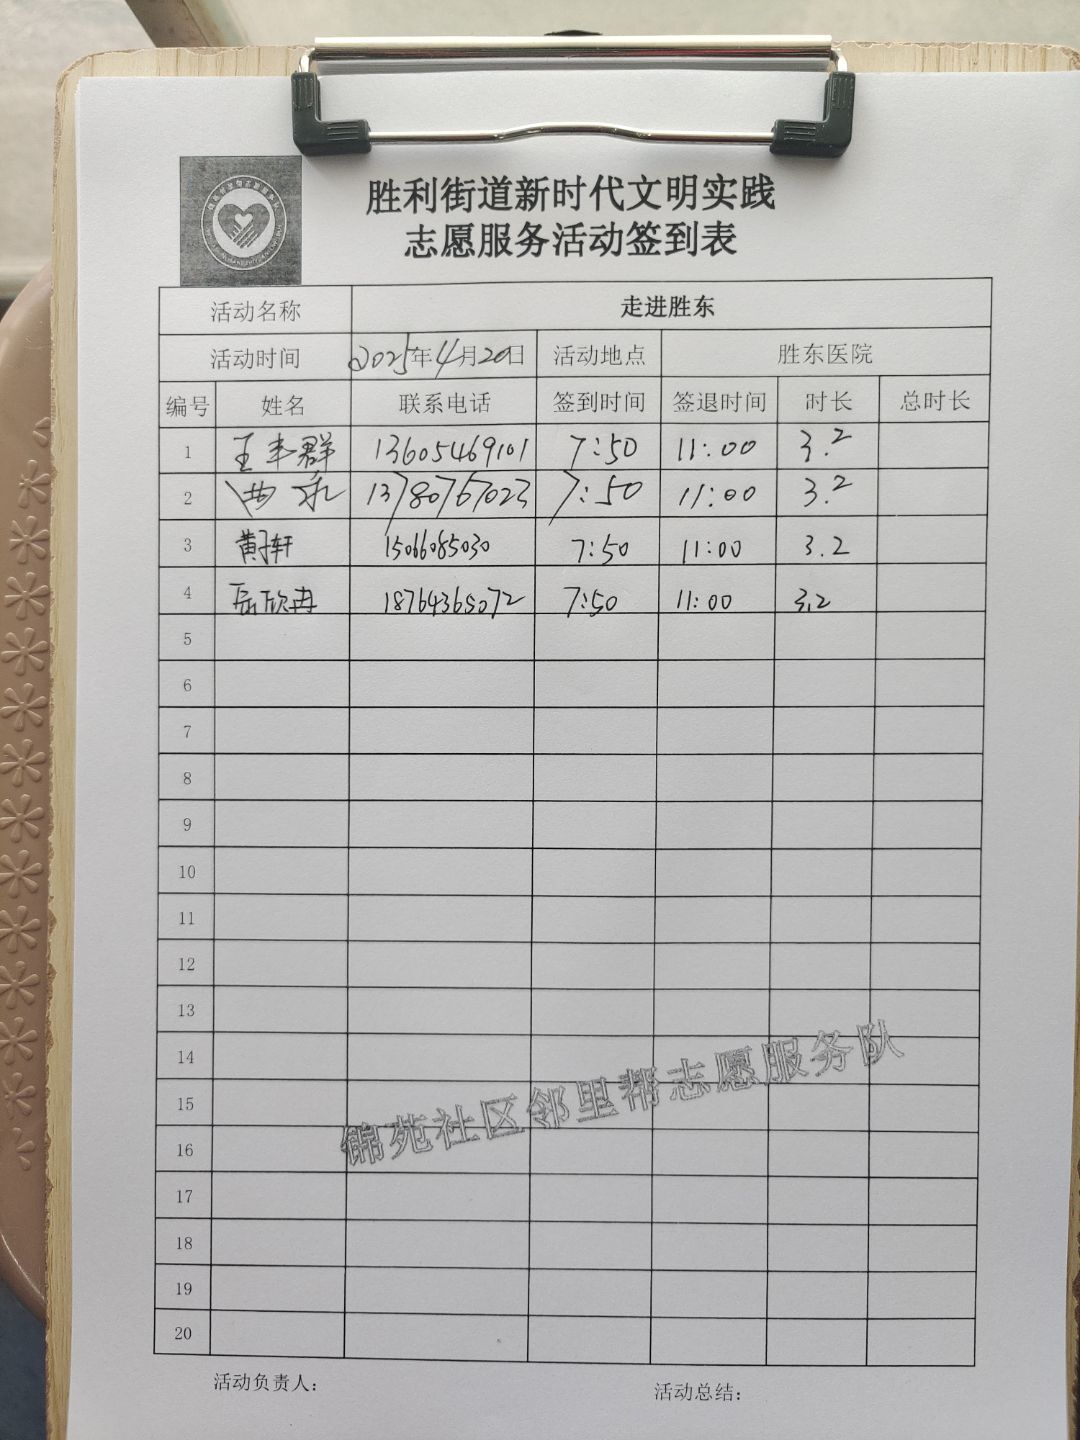 胜利街道新时代文明实践
志愿服务活动签到表
活动名称 走进胜东
活动时间 2025年4月20日 活动地点 胜东医院
编号 姓名 联系电话 签到时间 签退时间 时长 总时长
1 王丰群 13605469101 7:50 11:00 3.2
2 13780767023 7:50 11:00 3.2
3 黄子轩 15066085030 7:50 11:00 3.2
4 岳欣冉 18764365072 7:50 11:00 3.2
5
6
7
8
9
10
11
12
13
14
15
16
17
18
19
20
锦苑社区邻里帮志愿服务队
活动负责人： 活动总结：